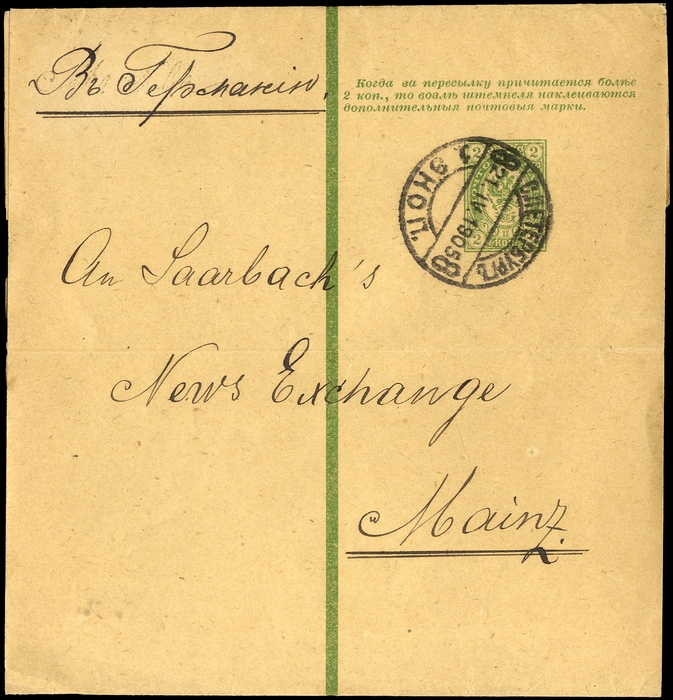 Въ Германію.
Когда за пересылку причитается болѣе
2 коп., то возлѣ штемпеля наклеиваются
дополнительныя почтовыя марки.
2 2
С.ПЕТЕРБУРГЪ
21 IV 1905
2 ЭКСП.
An Saarbach's
News Exchange
Mainz